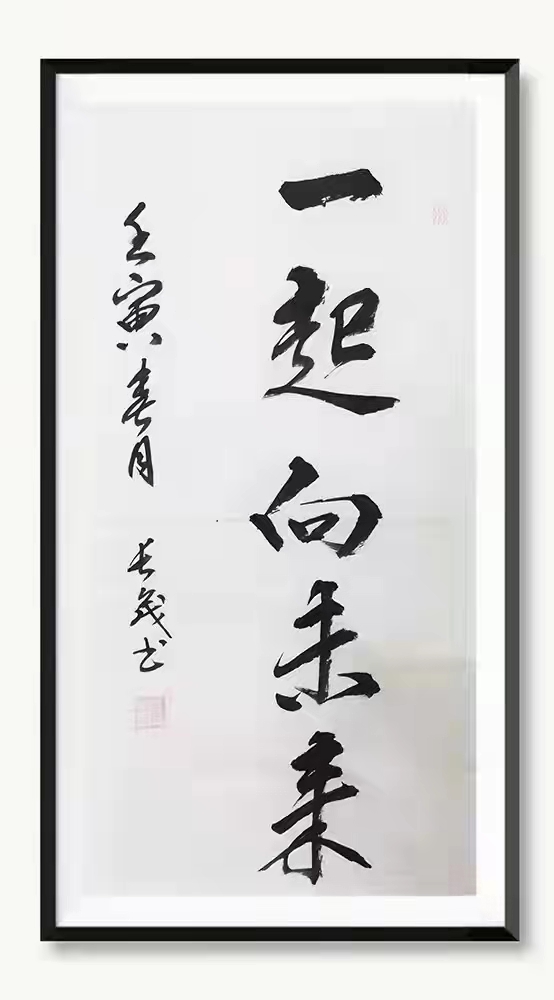 一起向未来
壬寅春月
长 书